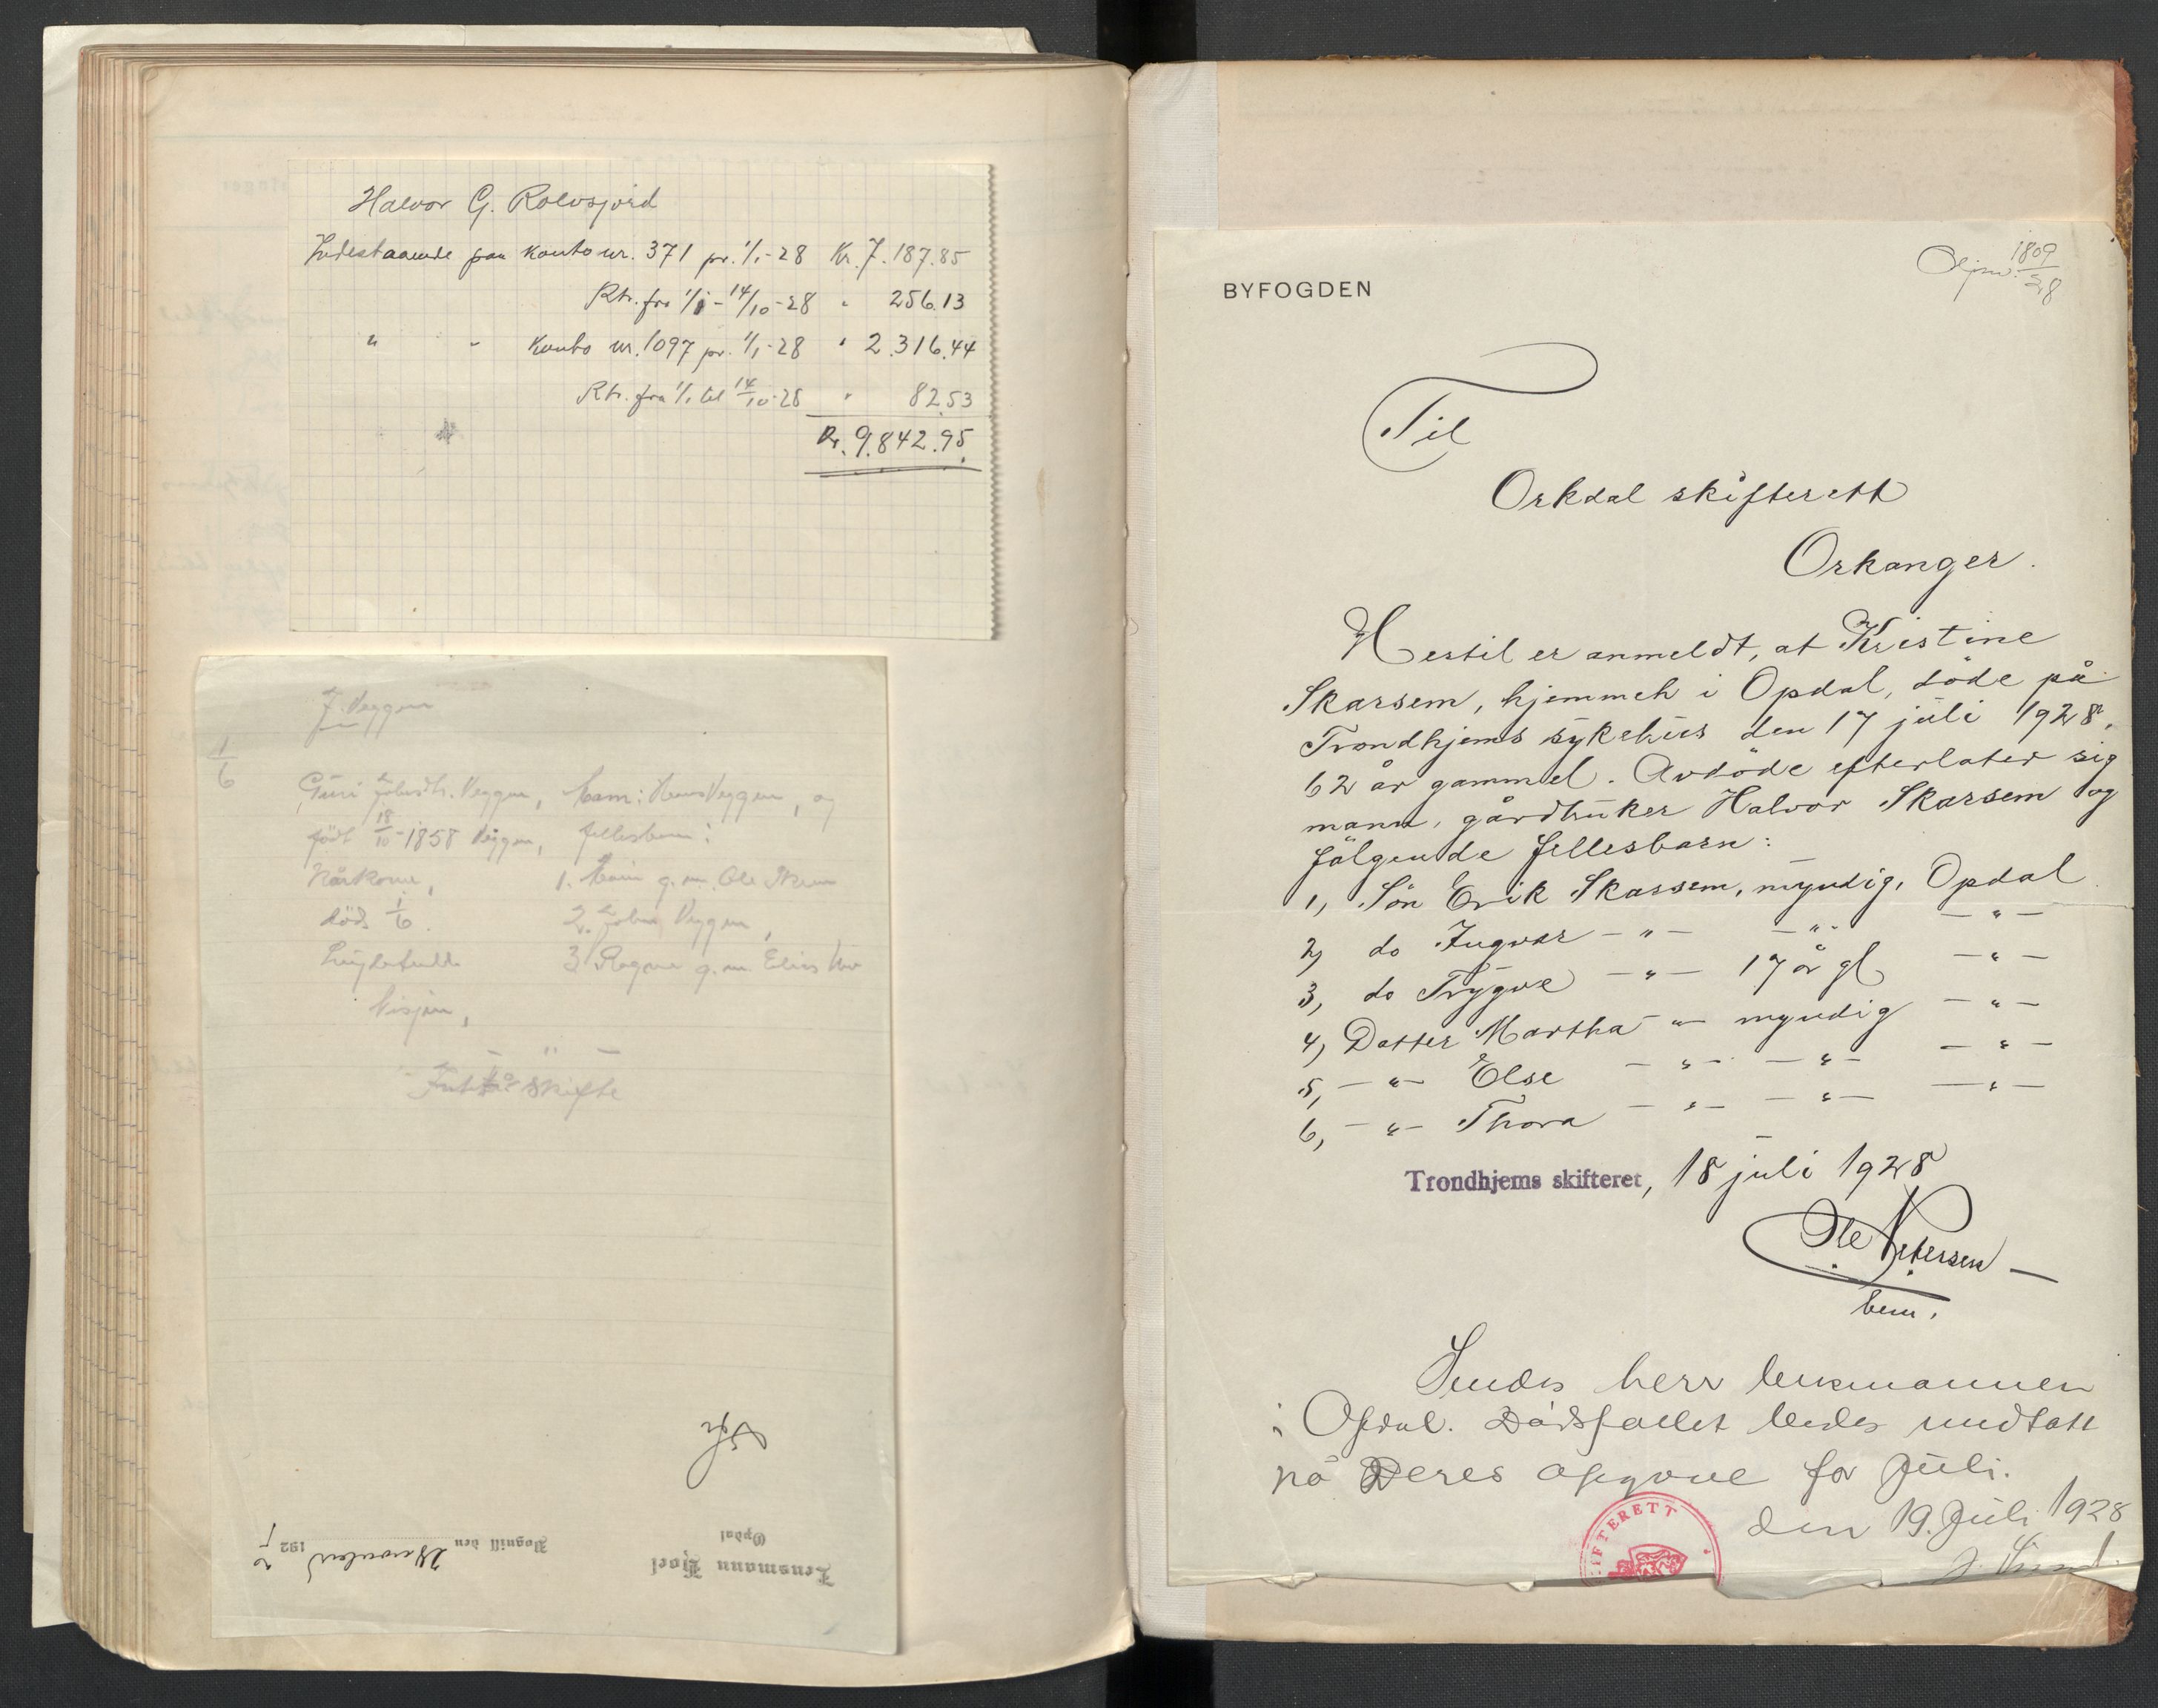 Halvor G. Rolvsjord
Indestaaende paa konto nr. 371 pr. 1/1-28 Kr. 7.187.85
Rtr. fra 1/1 - 14/10-28 " 256.13
" - Konto nr. 1097 pr. 1/1-28 " 2.316.44
Rtr. fra 1/1 til 14/10-28 " 82.53
Kr. 9.842.95.
J. Veggen
1/6
Guri Johnsdtr. Veggen, Mann: Hans Veggen, og
født 18/10-1858 Veggen, fellesbarn:
Kårkone, 1. Mari g. m. Ole
død 1/6. 2. John Veggen,
3. Ragna g. m. Elias
skifte
Lensmann Hoel
Opdal
Vognill den 192
BYFOGDEN
1809/28
Til
Orkdal skifterett
Orkanger.
Hertil er anmeldt, at Kristine
Skarsem, hjemmeh i Opdal, døde på
Trondhjems sykehus den 17 juli 1928,
62 år gammel. Avdøde efterlater sig
mann, gårdbruker Halvor Skarsem og
følgende fellesbarn:
1, Søn Erik Skarsem, myndig, Opdal
2, do Ingvar — " — — " — — " —
3, do Trygve — " — 17 år gl — " —
4, Datter Martha — " — myndig — " —
5, — " — Else — " — — " — — " —
6, — " — Thora — " — — " — — " —
Trondhjems skifteret, 18 juli 1928
Ole Petersen
bem.
Sendes herr lensmannen
i Opdal. Dødsfallet bedes medtatt
på Deres opgave for juli.
den 19. Juli 1928
SKIFTERETT